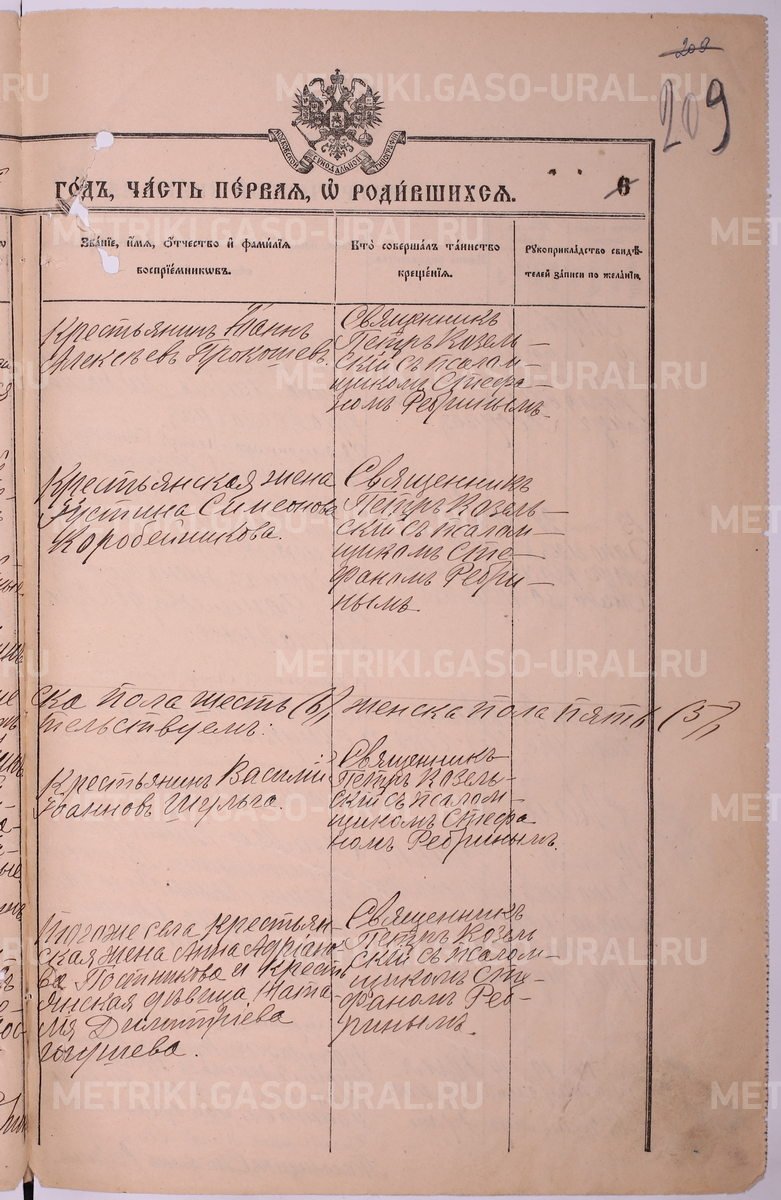 208
209
МОСКОВСКОЙ СУНОДАЛЬНОЙ ТИПОГРАФІИ
ГО́ДЪ, ЧА́СТЬ ПЕ́РВАЯ, Ѽ РОДИ́ВШИХСЯ.
6
Зва́ніе, и҆́мя, ѻ҆́тчество и҆ фами́лїя
воспрїе́мникѡвъ.
Кто̀ соверша́лъ та́инство
креще́нїя.
Рꙋкоприкла́дство свидѣ́-
телей за́писи по жела́нїю.
Крестьянинъ Іоаннъ
Алексѣевъ Прокошевъ.
Священникъ
Петръ Козель-
скій съ псалом-
щикомъ Стефа-
номъ Ребринымъ
Крестьянская жена
Іустина Симеонова
Коробейникова.
Священникъ
Петръ Козель-
скій съ псалом-
щикомъ Сте-
фаномъ Ребри-
нымъ.
ска пола шесть (6), женска пола пять (5),
тельствуемъ:
Крестьянинъ Василій
Іоанновъ Шульга.
Священникъ
Петръ Козель-
скій съ псалом-
щикомъ Стефа
номъ Ребринымъ.
Тогоже села крестьян-
ская жена Анна Адріано-
ва и крестьянская дѣвица Ната-
лія Димитріева
Священникъ
Петръ Козель
скій съ псалом-
щикомъ Сте-
фаномъ Реб-
ринымъ.
METRIKI.GASO-URAL.RU